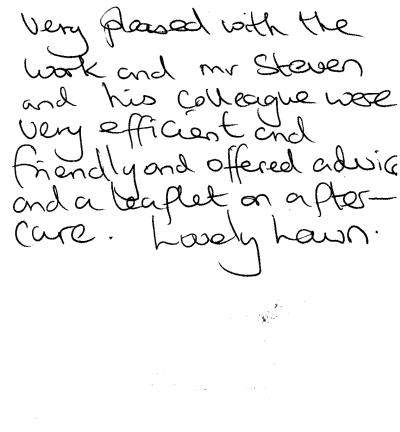 Very pleased with the
work and mr Steven
and his colleague were
very efficient and
friendly and offered advice
and a leaflet on after-
care. Lovely Lawn.